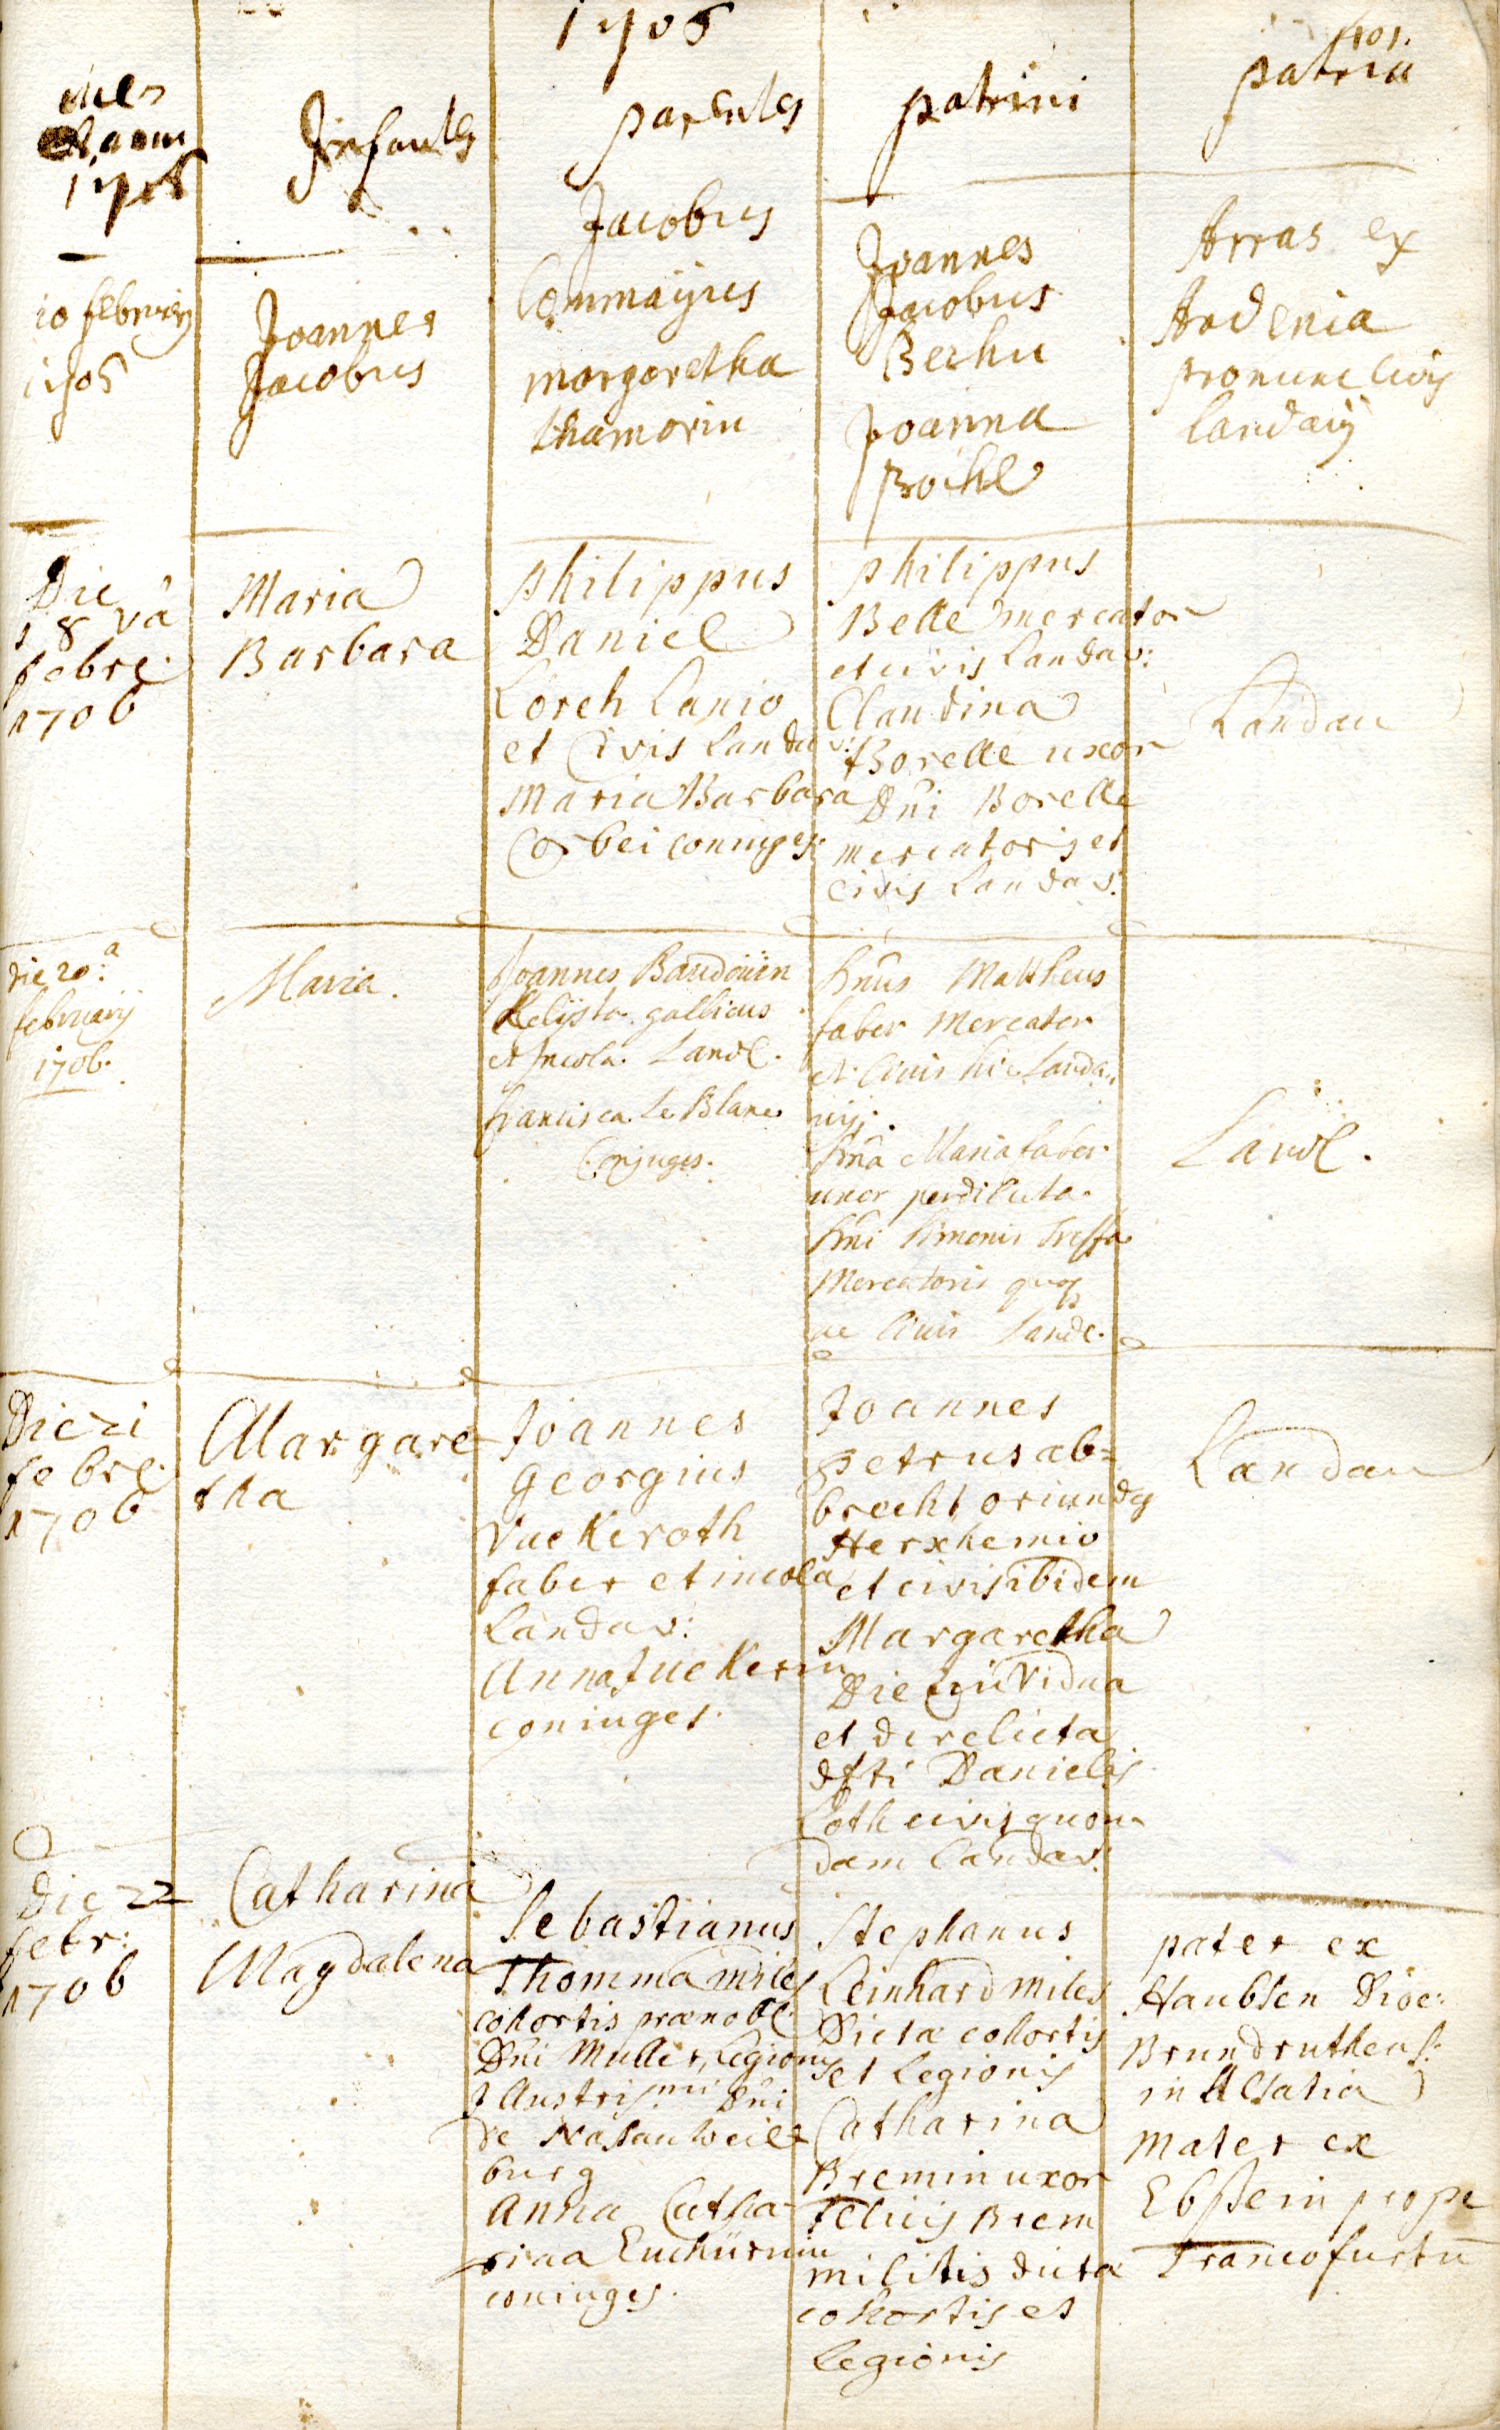 1706
401.
dies
et annus
1706
Infantes
parentes
patrini
patria
10 februarij
1706
Joannes
Jacobus
Jacobus
Commaijres
margaretha
thamorin
Joannes
Jacobus
Bechu
Joanna
Bochl
Arras ex
Ardenia
pronunc civis
landavij
Die
18 va
febre:
1706
Maria
Barbara
philippus
Daniel
Lorch Lanio
et Civis Landav:
Maria Barbara
Corbei coniuges:
philippus
Belle mercator
et civis Landav:
Claudina
Borelle uxor
Dni Borelle
mercatoris et
civis Landav:
Landau
die 20.a
februarij
1706.
Maria.
Joannes Baudouin
gallicus
et Incola. Land.
francisca. Le Blanc
Conjuges.
Mattheus
faber Mercator
et Civis hic Landa
vij.
Maria faber
uxor perdilecta
Simonis Treffa
Mercatoris quoq
ac Civis Land.
Land.
Die 21
febre:
1706
Margare
tha
Joannes
Georgius
Vackeroth
faber et incola
Landav:
Anna Juckerin
coniuges.
Joannes
petrus ab=
brecht oriundus
Herxhemio
et civis ibidem
Margaretha
Vidua
et derelicta
dfti Danielis
Loth civis quon
dam Landav:
Landau
Die 22
febr:
1706
Catharina
Magdalena
Sebastianus
Thomma miles
cohortis prænobl.
Dni Muller, Legionis
Dni
de Nassau Weil
burg
Anna Catha
rina Euchürnin
coniuges.
Stephanus
Leinhard miles
Dictæ cohortis
et Legionis
Catharina
Bremin uxor
Felicis Brem
militis dictæ
cohortis et
Legionis
pater ex
Haubsen Dioe:
Brundruthens:
in Alsatia
Mater ex
Ebstein prope
Francofurtū